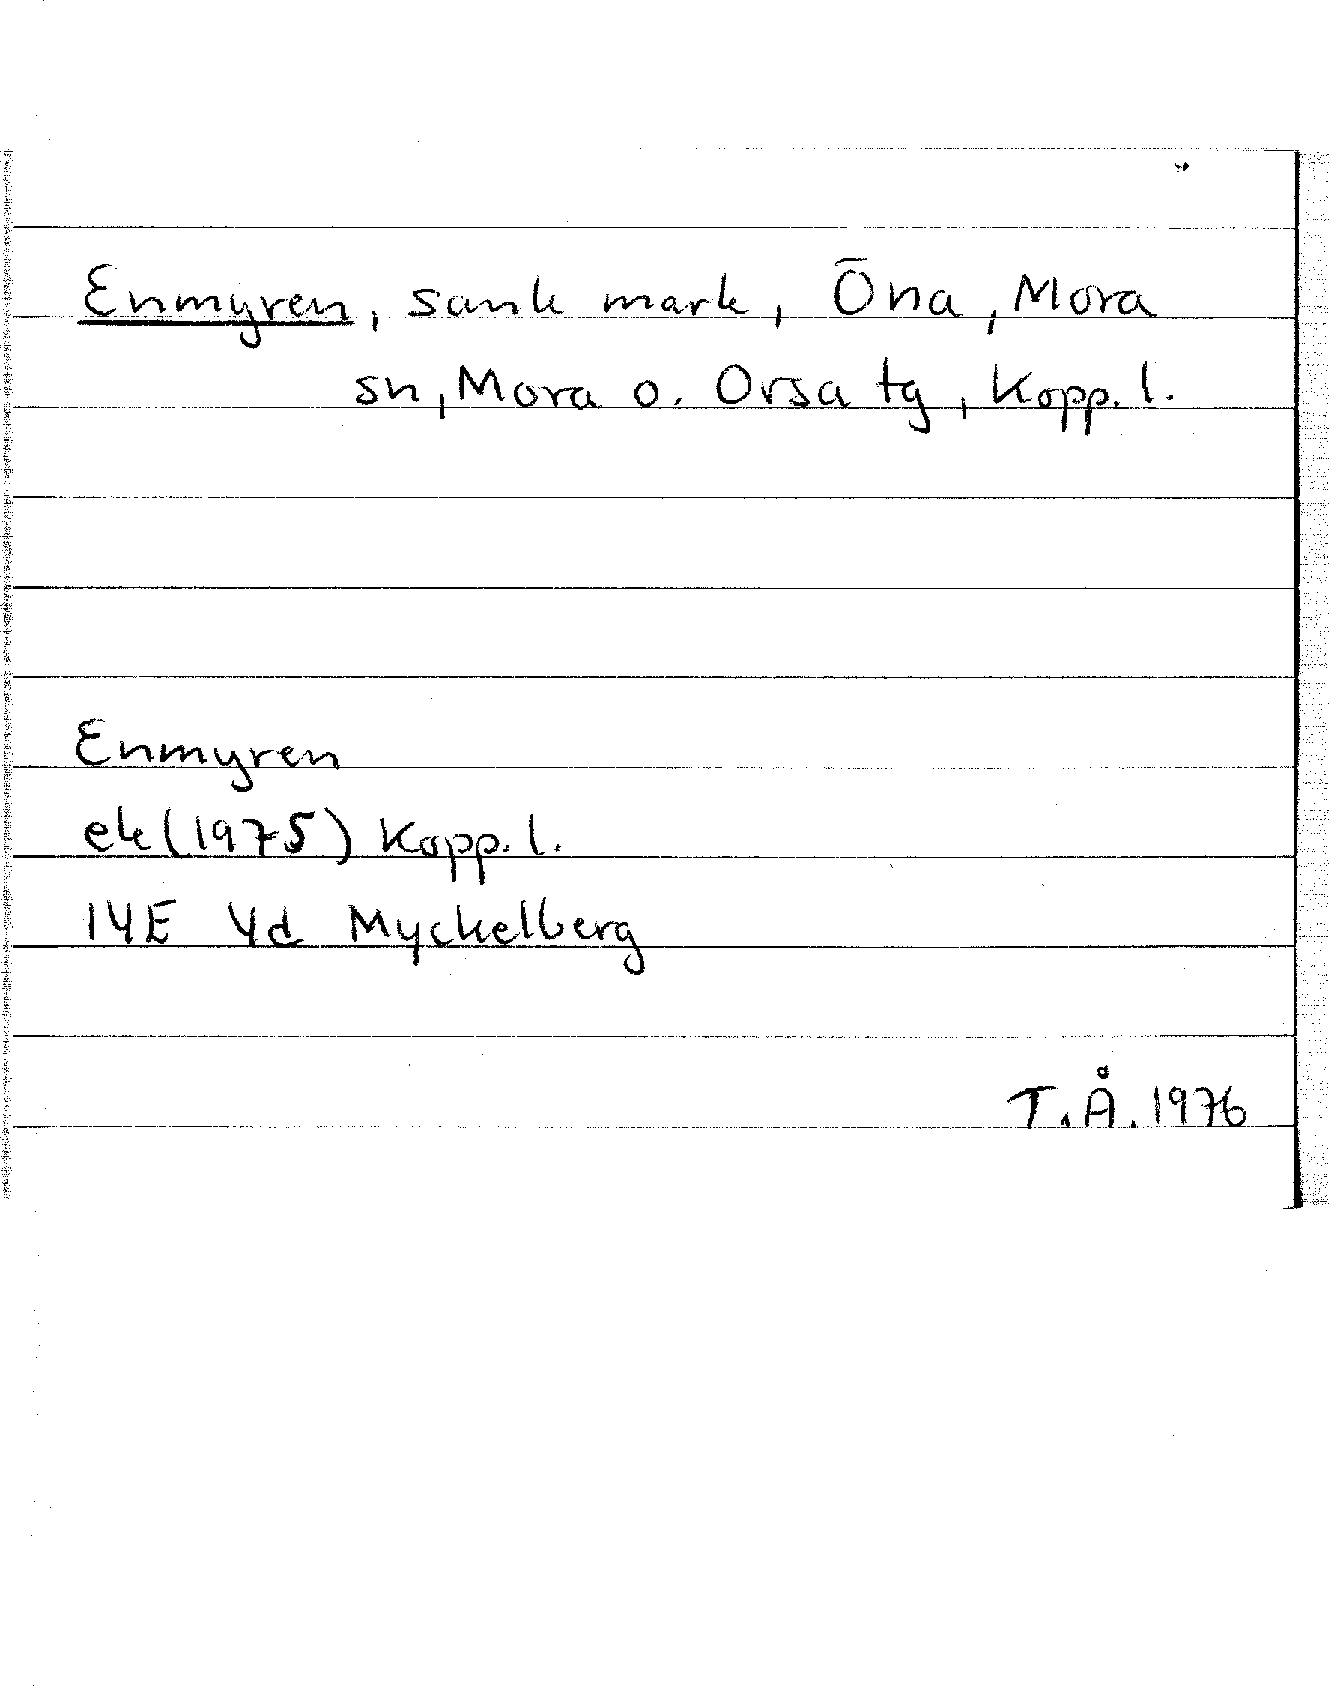 Enmyren, sank mark, Öna, Mora
sn, Mora o. Orsa tg, Kopp. l.
Enmyren
ek (1975) Kopp. l.
14E 4d Myckelberg
T.Å. 1976